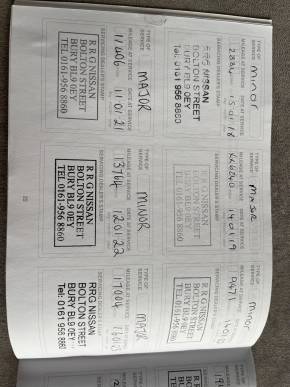 TYPE OF SERVICE minor
MILEAGE AT SERVICE DATE AT SERVICE
2884 15/01/18
SERVICING DEALER'S STAMP
RRG NISSAN
BOLTON STREET
BURY BL9 0EY
Tel: 0161 956 8860
TYPE OF SERVICE major
MILEAGE AT SERVICE DATE AT SERVICE
14/01/19
SERVICING DEALER'S STAMP
R R G NISSAN
BOLTON STREET
BURY BL9 0EY
TEL 0161-956 8860
TYPE OF SERVICE minor
MILEAGE AT SERVICE
9471
SERVICING DEALER'S STAMP
R R G NISSAN
BOLTON STREET
BURY BL9 0EY
TEL 0161-956 8860
TYPE OF SERVICE MAJOR
MILEAGE AT SERVICE DATE AT SERVICE
11406 11 01 21
SERVICING DEALER'S STAMP
R R G NISSAN
BOLTON STREET
BURY BL9 0EY
TEL 0161-956 8860
TYPE OF SERVICE MINOR
MILEAGE AT SERVICE DATE AT SERVICE
13764 12 01 22
SERVICING DEALER'S STAMP
R R G NISSAN
BOLTON STREET
BURY BL9 0EY
TEL 0161-956 8860
TYPE OF SERVICE MAJOR
MILEAGE AT SERVICE
17004
SERVICING DEALER'S STAMP
RRG NISSAN
BOLTON STREET
BURY BL9 0EY
Tel: 0161 956 8860